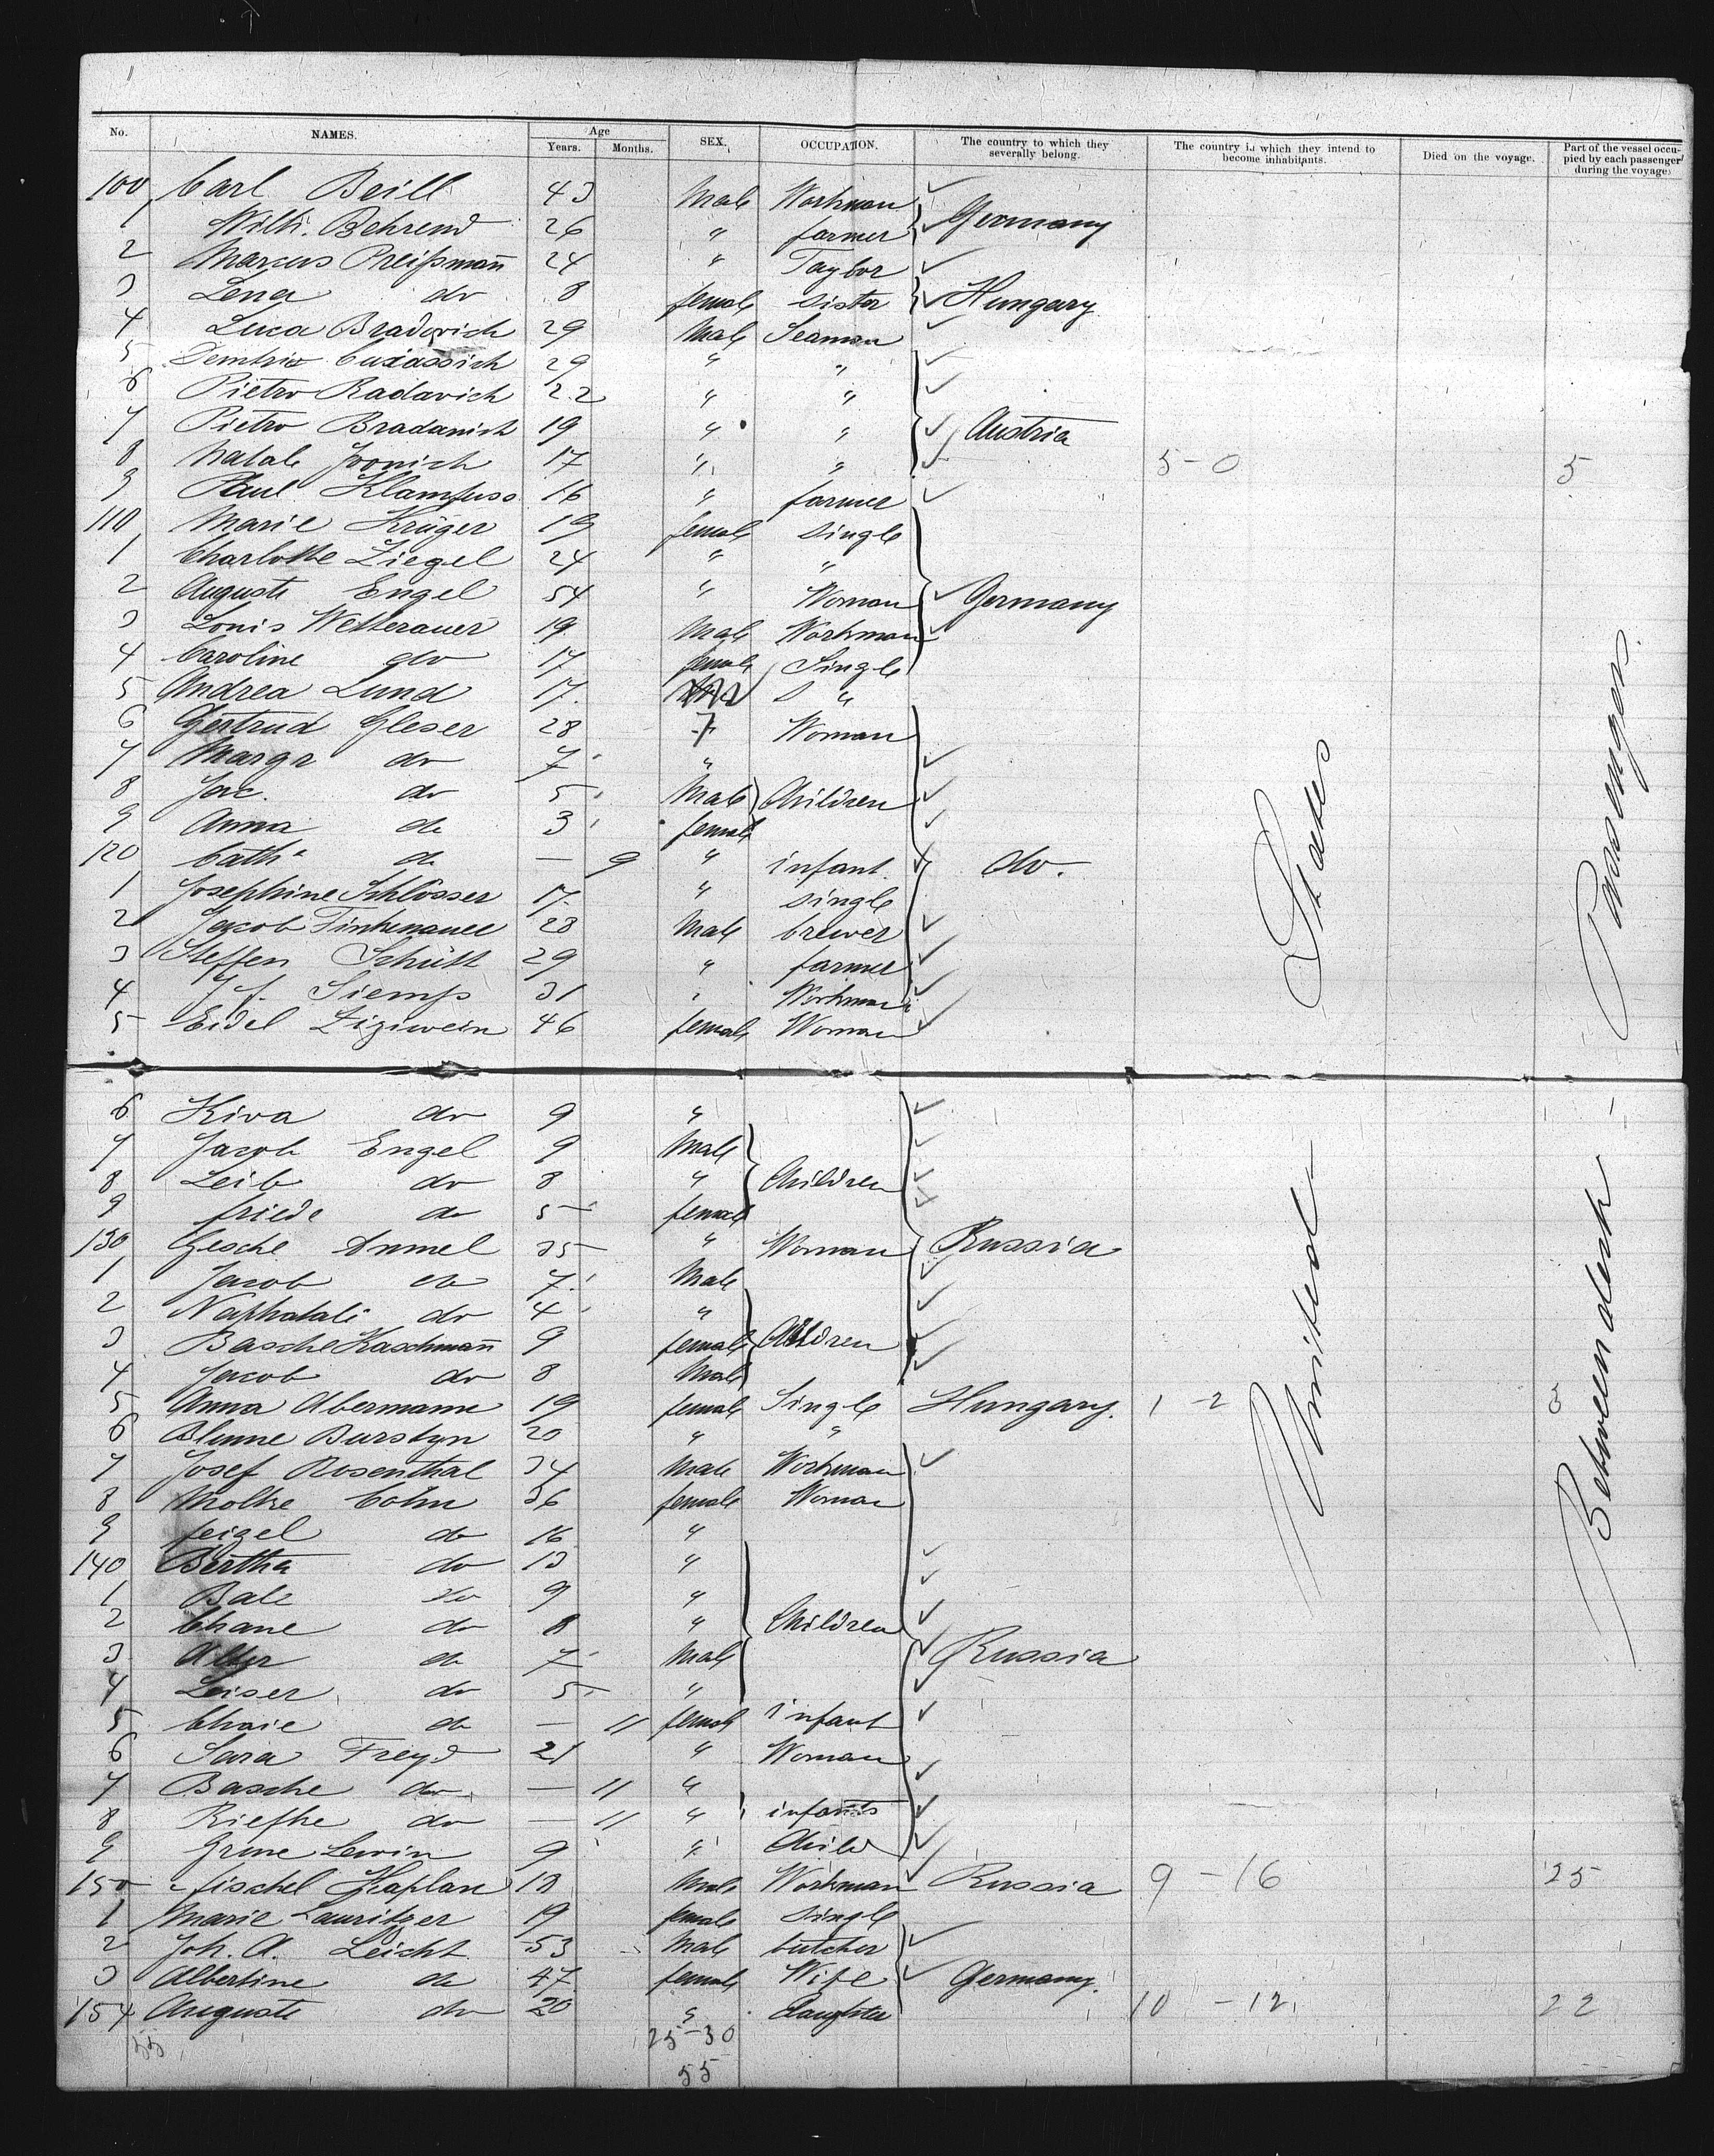 No. NAMES. Age Years. Months. SEX. OCCUPATION. The country to which they severally belong. The country in which they intend to become inhabitants. Died on the voyage. Part of the vessel occupied by each passenger during the voyage.
100 Carl Beill 43 Male Workman
1 Wilh. Behrend 26 " farmer Germany
2 Marcus Preißmañ 24 " Taylor
3 Lena do 8 female sister Hungary
4 Luca Bradovich 29 Male Seaman
5 29 " "
6 Pietro Radavich 22 " "
7 Pietro Bradanich 19 " " Austria
8 Natale 17 " " 5-0 5
9 Paul Klamfuss 16 " farmer
110 Marie Krüger 19 female single
1 Charlotte Ziegel 24 " "
2 Auguste Engel 54 " Woman Germany
3 Louis Wetterauer 19 Male Workman
4 Caroline do 17 female Single
5 Andrea Lund 17. "
6 Gertrud Gleser 28 Woman
7 Margr do 7 "
8 Jac. do 5 Male Children
9 Anna do 3 female
120 Cath. do — 9 " infant. do.
1 Josephine Schlösser 17. " single
2 Jacob 28 Male brewer
3 Steffen Schütt 29 " farmer
4 Siemss 31 " Workman
5 Eidel Ziziwein 46 female Woman
6 Kiva do 9 "
7 Jacob Engel 9 Male
8 Leib do 8 " Children
9 friede do 5 female
130 Gesche 35 " Woman Russia
1 Jacob do 7 Male
2 Naphatali do 4 "
3 Basche Kaschmañ 9 female Children
4 Jacob do 8 Male
5 Anna Abermann 19 female Single Hungary. 1-2 3
6 Blume Burstyn 20 " "
7 Josef Rosenthal 34 Male Workman
8 Molke Cohn 36 female Woman
9 feigel do 16 "
140 Bertha do 13 "
1 Bale do 9 "
2 Chane do 8 " Children
3 Alter do 7 Male Russia
4 Leiser do 5 "
5 Chaie do — 11 female infant
6 Sara Freyd 21 " Woman
7 Basche do — 11 "
8 Riefke do — 11 " infants
9 Grune Lewin 9 " Child
150 fischel Kaplan 18 Male Workman Russia 9-16 25
1 Marie Lauritzer 19 female single
2 Joh. A. Leicht 53 Male butcher
3 Albertine do 47 female Wife Germany.
154 Auguste do 20 " daughter 10-12 22
55 25-30
55
United States
Between deck Passengers.